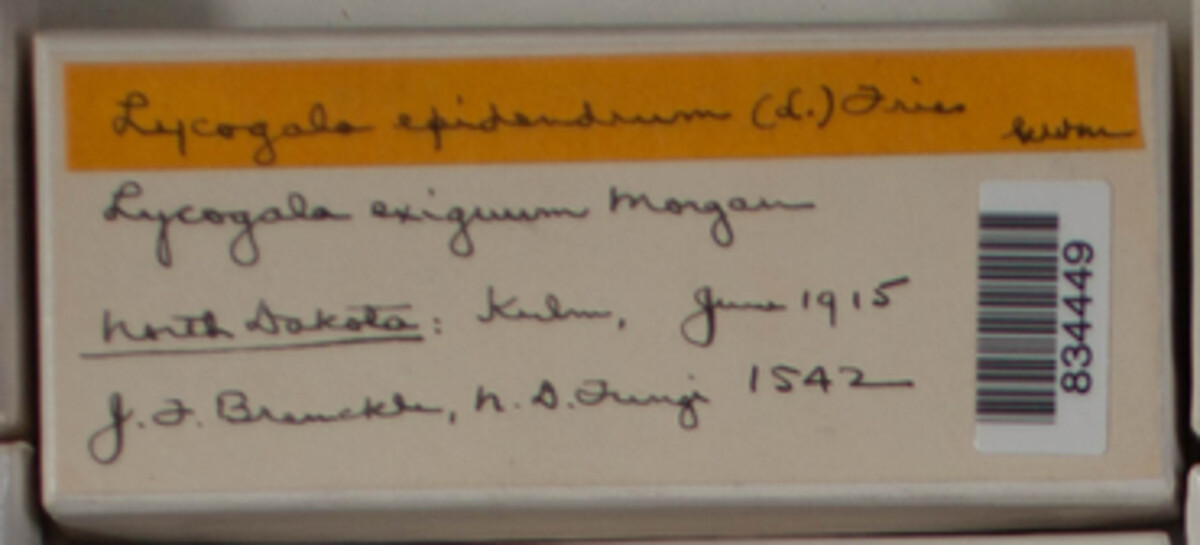 Lycogala epidendrum (L.) Fries
Lycogala exiguum Morgan
North Dakota: Kulm, June 1915
J. F. Brenckle, N. D. Fungi 1542
834449